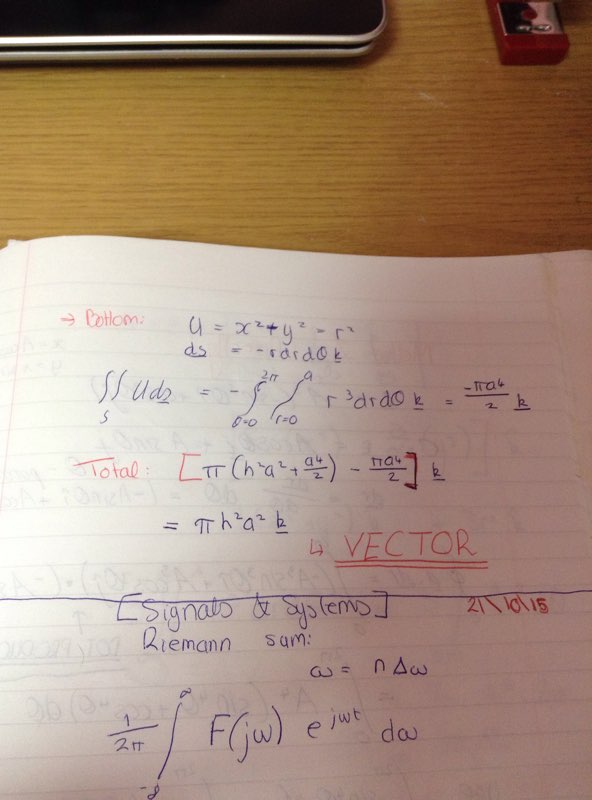 → Bottom: U = x² + y² = r²
ds = -rdrdθ k
∬ U ds = - ∫ ∫ r³drdθ k = -πa4/2 k
S θ=0 2π r=0 a
Total: [π(h²a² + a4/2) - πa4/2] k
= πh²a² k
↳ VECTOR
[Signals & Systems] 21\10\15
Riemann sum:
ω = nΔω
1/2π ∫ F(jω) e^jωt dω
-∞ ∞